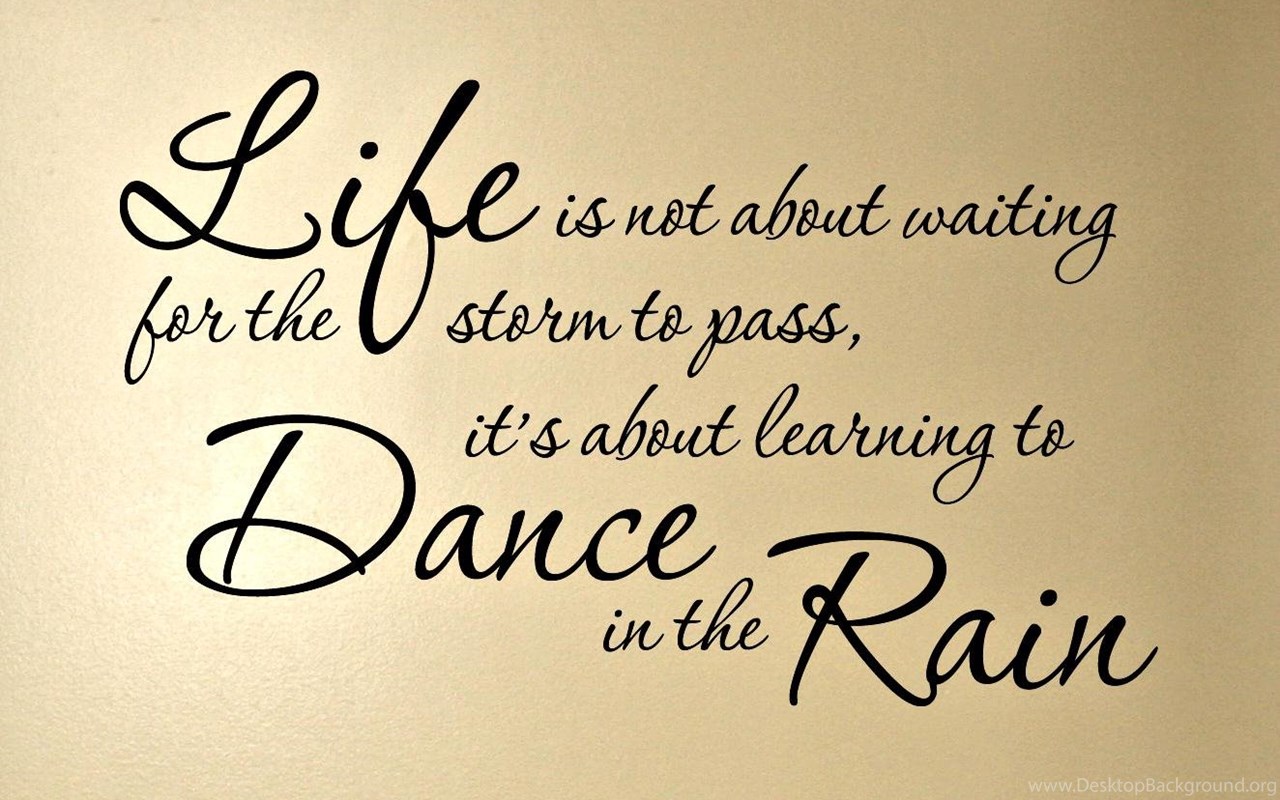 Life is not about waiting
for the storm to pass,
it's about learning to
Dance
in the Rain
www.DesktopBackground.org